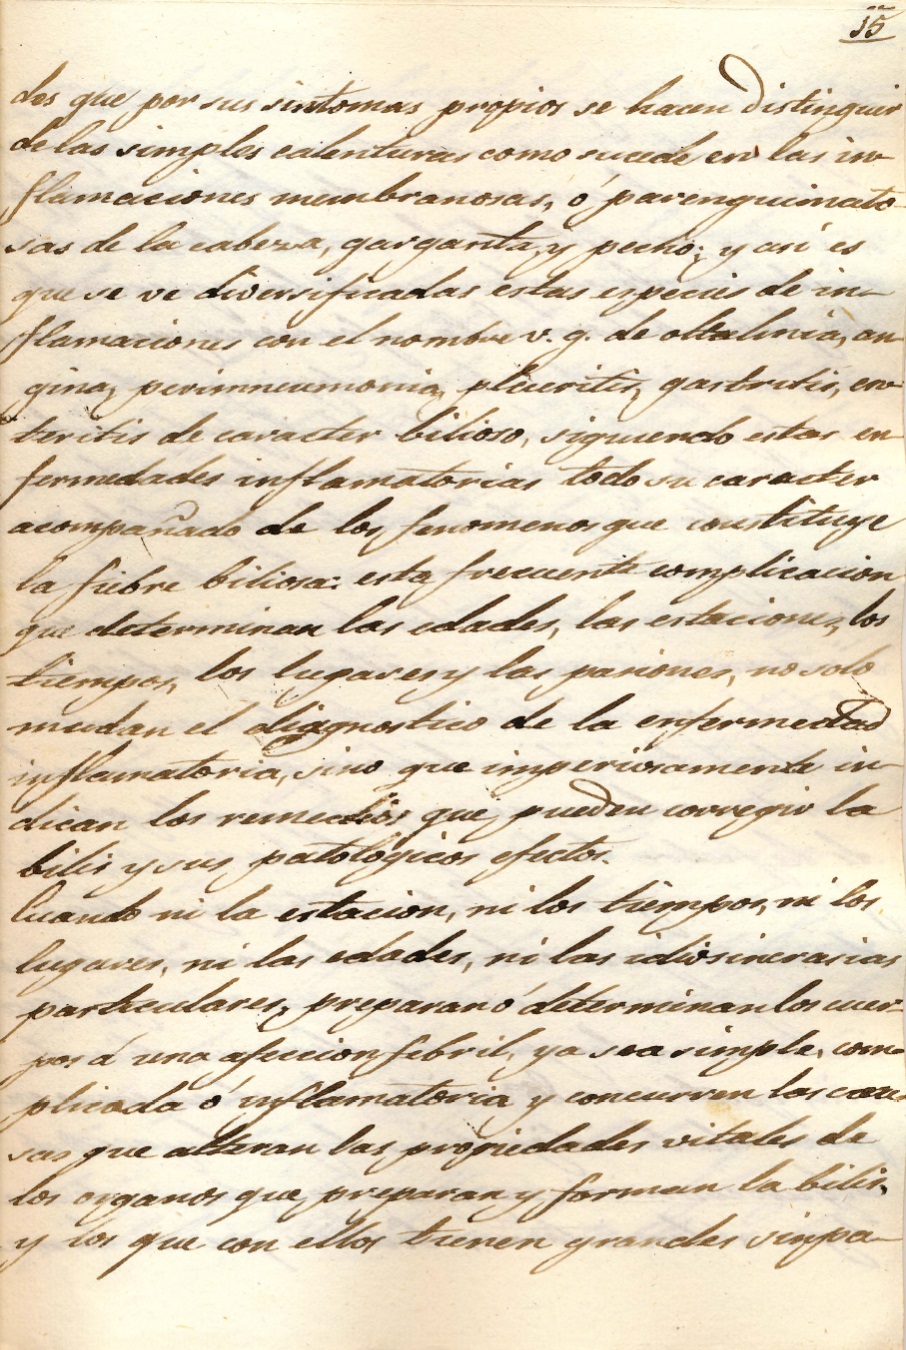 15
dos que por sus sintomas propios se hacen distinguir
de las simples calenturas como sucede en las in-
flamaciones membranosas, ó parenquimato-
sas de la cabeza, garganta, y pecho; y asi es
que se ve diversificadas estas especies de in-
flamaciones con el nombre v. g. de oltalmia, an
gina, perimneumonia, pleuritis, gastritis, en-
teritis de caracter bilioso, siguiendo estas en
fermedades inflamatorias todo su caracter
acompañado de los fenomenos que constituye
la fiebre biliosa: esta frecuente complicacion
que determinan las edades, las estaciones, los
tiempos, los lugares y las pasiones, no solo
mudan el diagnostico de la enfermedad
inflamatoria, sino que imperiosamente in-
dican los remedios que pueden corregir la
bilis y sus patológicos efectos.
Cuando ni la estacion, ni los tiempos, ni los
lugares, ni las edades, ni las idiosincrasias
particulares, preparan ó determinan los cuer-
pos á una afeccion febril, ya sea simple, com-
plicada ó inflamatoria y concurren las cau-
sas que alteran las propiedades vitales de
los organos que preparan y forman la bilis,
y los que con ellos tienen grandes simpa-